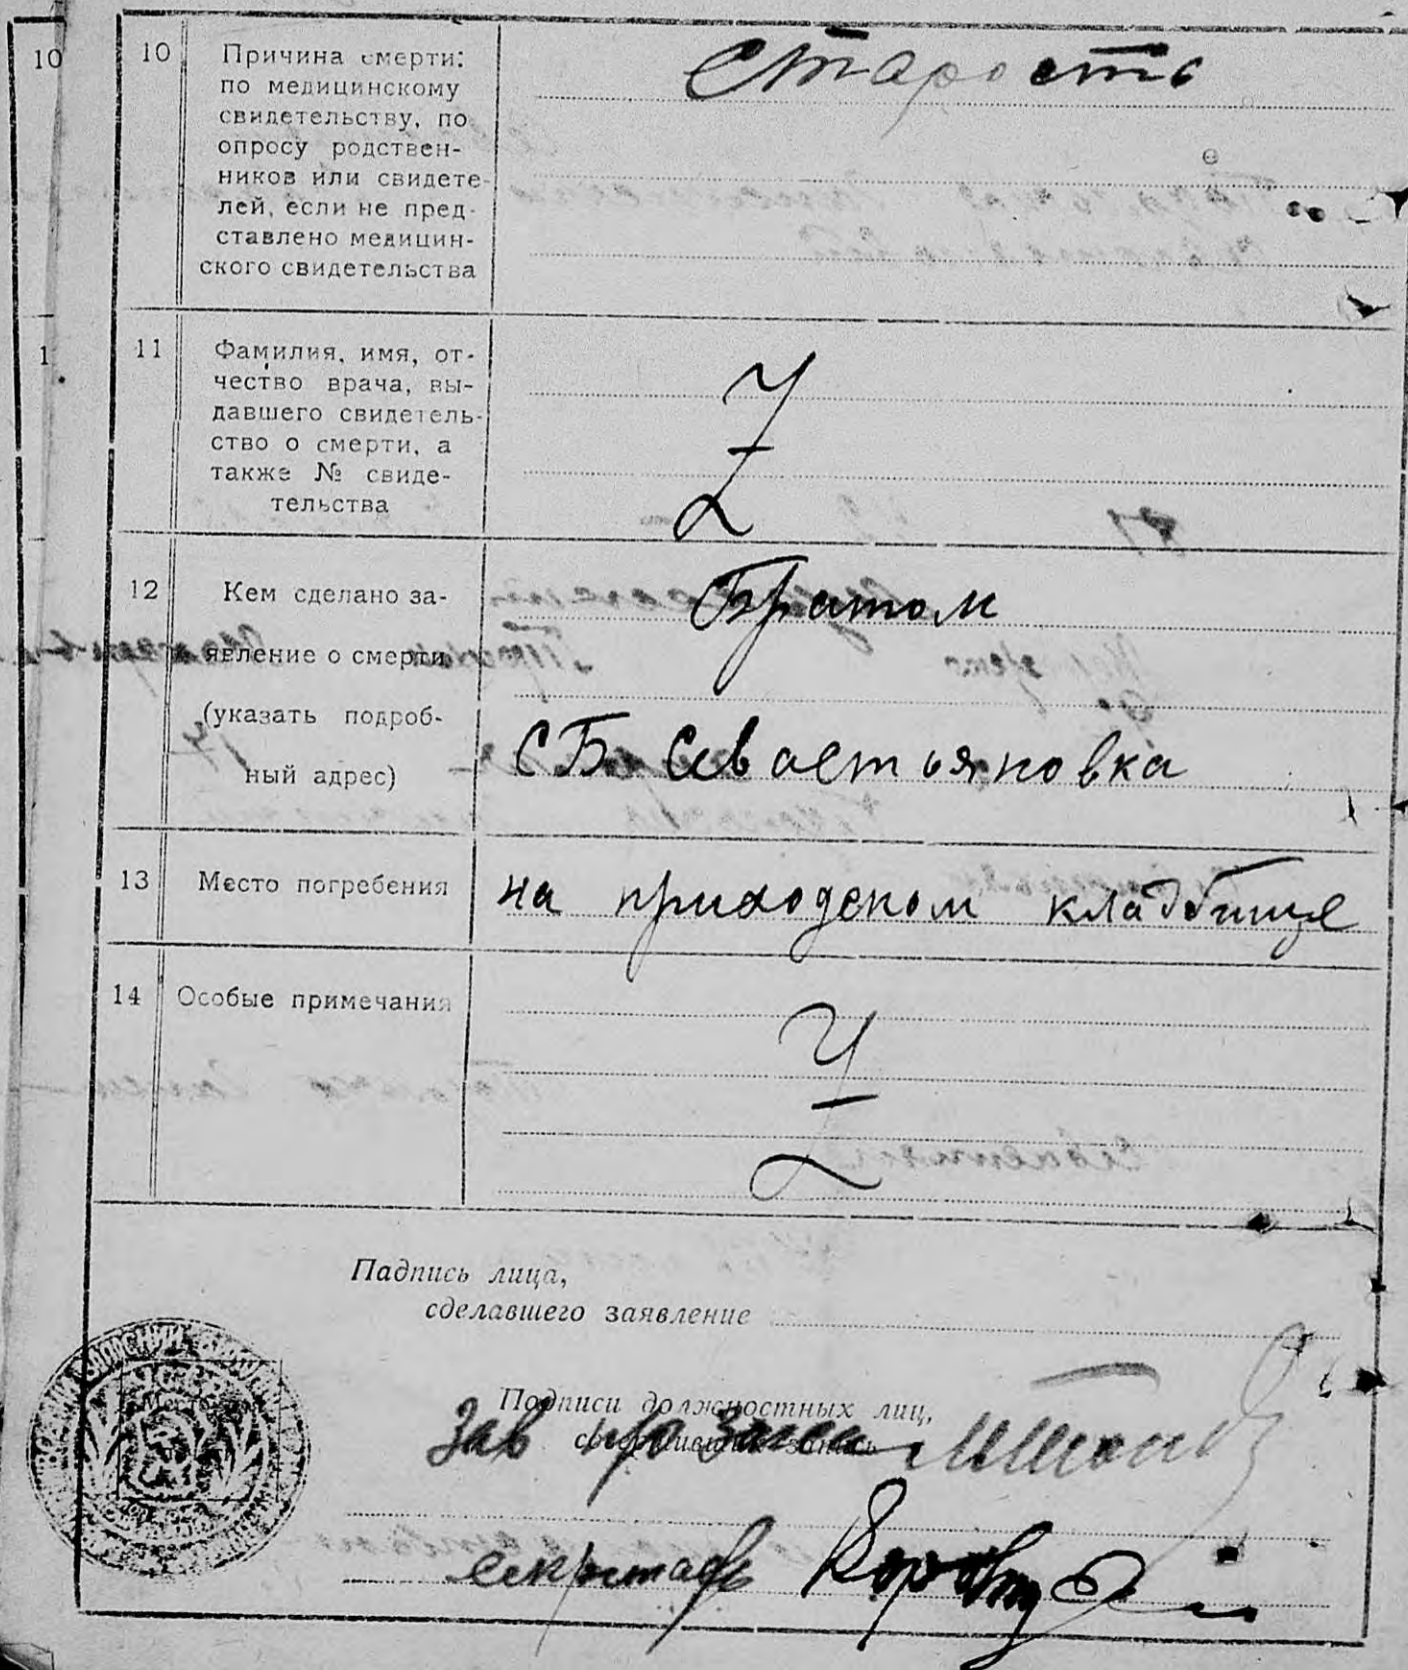 10
10
Причина смерти:
по медицинскому
свидетельству, по
опросу родствен-
ников или свидете-
лей, если не пред-
ставлено медицин-
ского свидетельства
Старость
1
11
Фамилия, имя, от-
чество врача, вы-
давшего свидетель-
ство о смерти, а
также № свиде-
тельства
Z
12
Кем сделано за-
явление о смерти
(указать подроб-
ный адрес)
Братом
СБ Севастьяновка
13
Место погребения
на приходском кладбище
14
Особые примечания
Z
Падпись лица,
сделавшего заявление
Подписи должностных лиц,
совершивших запись
Зав
секретарь